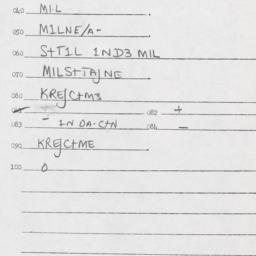 040 MIL.
050 M1LNE/A-
060 S+T1L 1ND3 MIL
070 MILS+TAJNE
080 KREJC+M3
082 +
083 - 1N DA·C+N 084 -
090 KREJC+ME
100 0